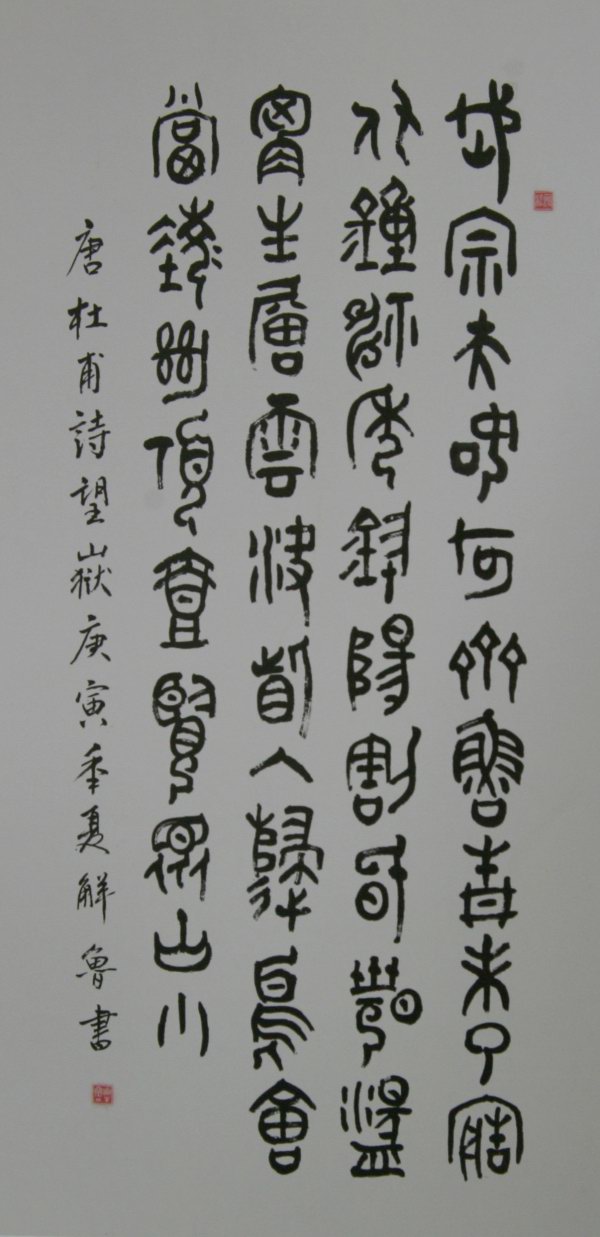 岱宗夫如何齊魯青未了造
化鐘神秀陰陽割昏曉盪
胸生層雲決眥入歸鳥會
當凌絕頂壹覽眾山小
唐杜甫詩望嶽庚寅秊夏觧魯書